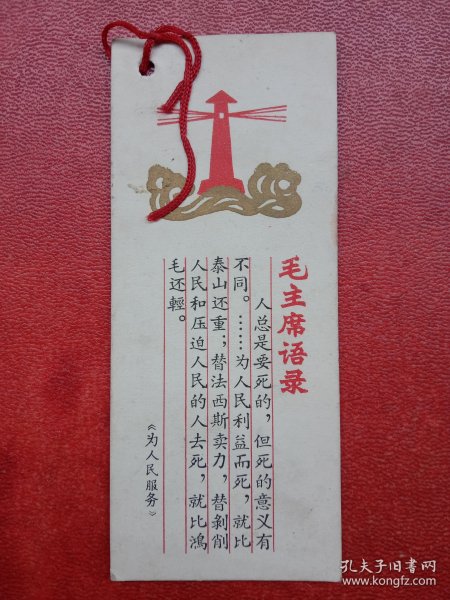 毛主席语录
人总是要死的，但死的意义有
不同。……为人民利益而死，就比
泰山还重；替法西斯卖力，替剥削
人民和压迫人民的人去死，就比鸿
毛还輕。
《为人民服务》
孔夫子旧书网
www.kongfz.com